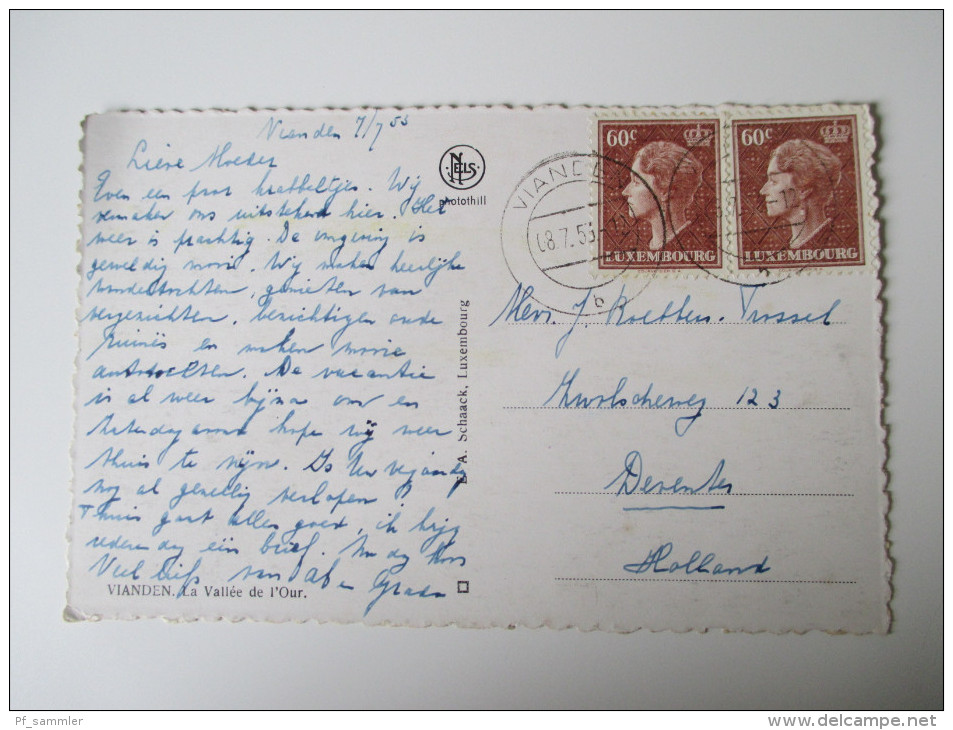 Vianden 7/7 53
Lieve Moeder
Even een paar krabbeltjes. Wij
vermaken ons uitstekend hier. Het
weer is prachtig. De omgeving is
geweldig mooi. Wij maken heerlijke
wandeltochten, genieten van
vergezichten, bezichtigen oude
ruïnes en maken mooie
autotochten. De vacantie
is al weer bijna om en
Zaterdagavond hope wij weer
thuis te zijn. Is Uw verjaardag
nog al gezellig verlopen
Thuis gaat alles goed, ik krijg
iedere dag een brief. Nu dag hoor
Veel liefs van Ab en
NELS
photothill
E. A. Schaack, Luxembourg
VIANDEN. La Vallée de l'Our.
VIANDEN
08.7.53
b
60c
LUXEMBOURG
60c
LUXEMBOURG
Mevr. J.
Zwolscheweg 123
Deventer
Holland
Pf_sammler
www.delcampe.net